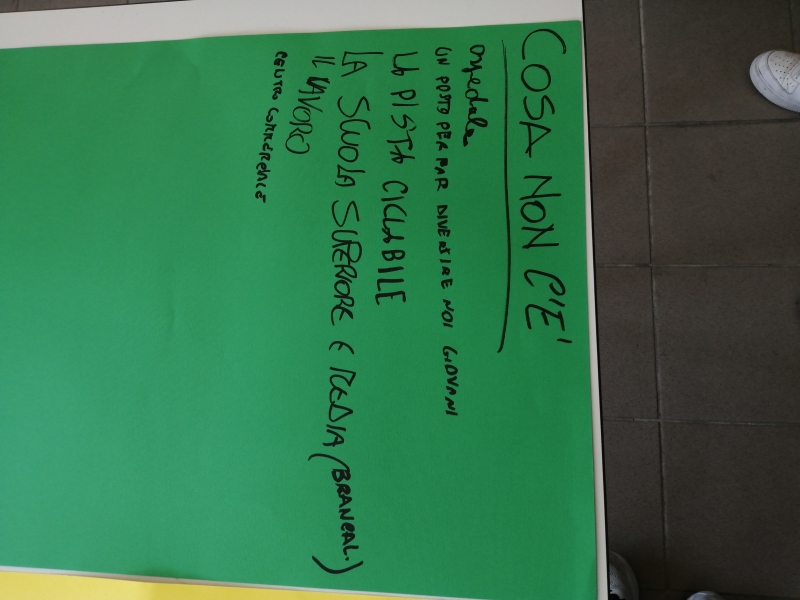 COSA NON C'È
Ospedale
UN POSTO PER FAR DIVERTIRE NOI GIOVANI
LA PISTA CICLABILE
LA SCUOLA SUPERIORE E MEDIA (BRANCAL.)
IL LAVORO
CENTRO COMMERCIALE